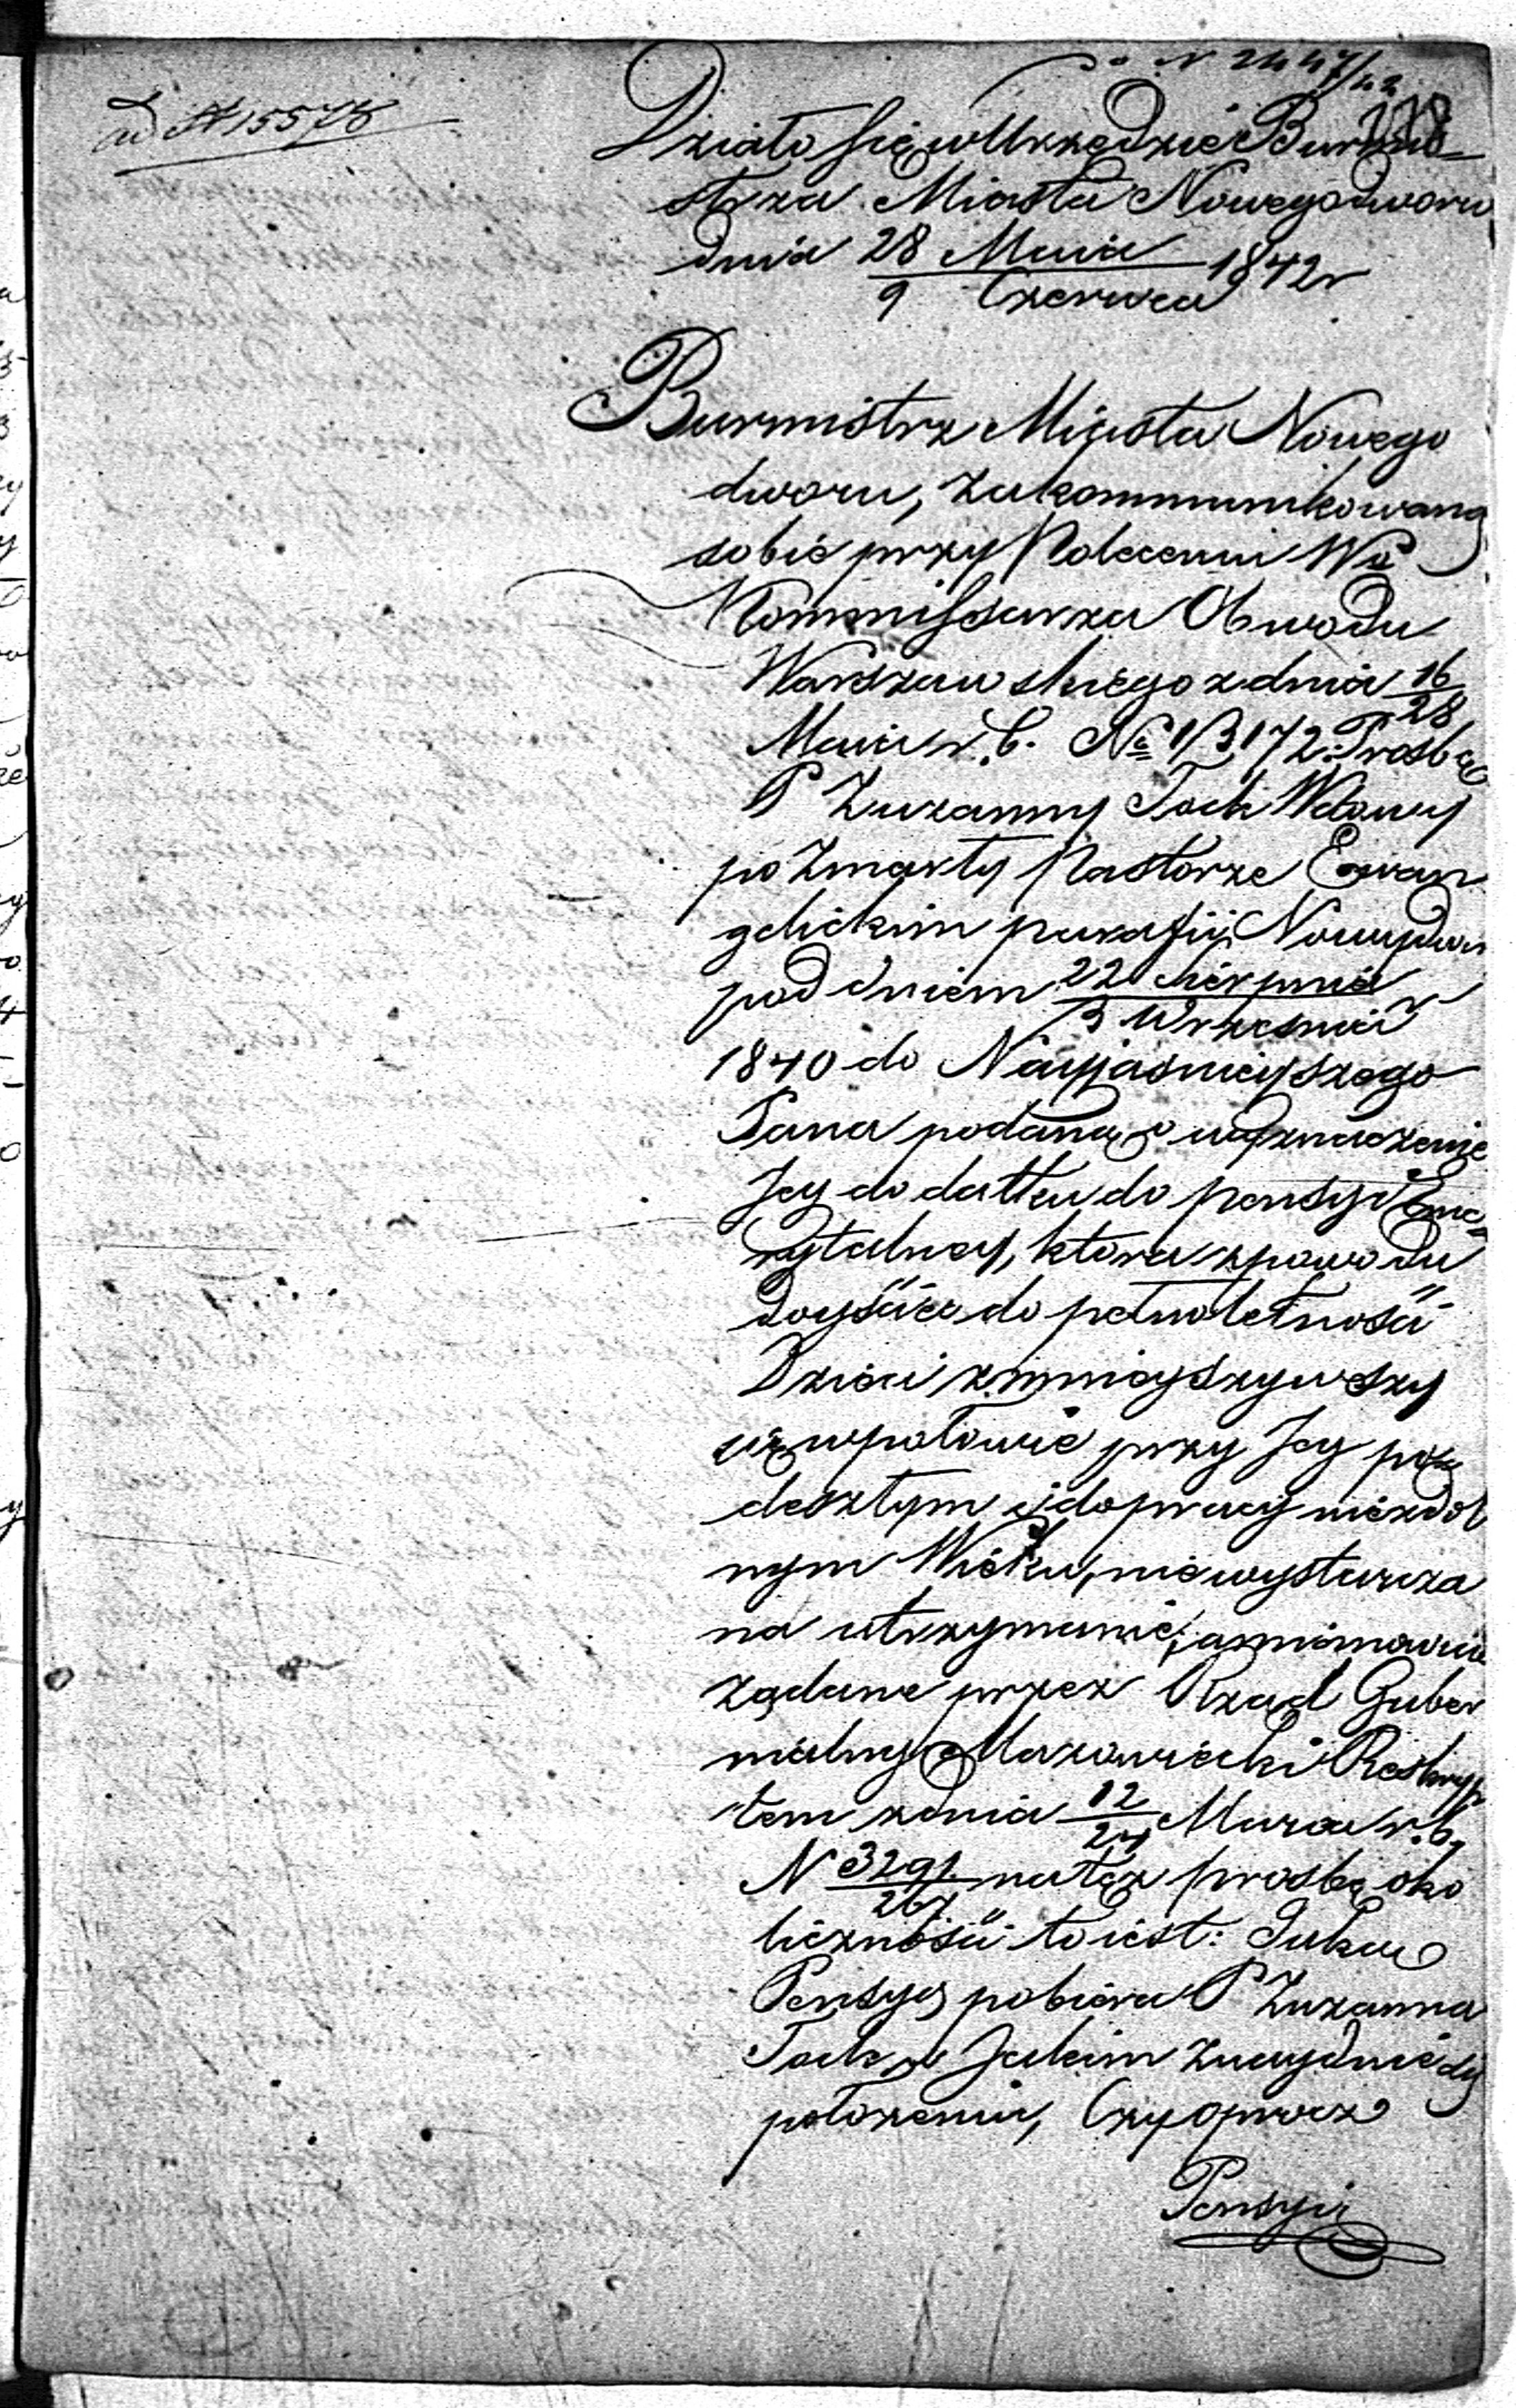 ad N 15576
N 2447/42
118
Działo się w Urzędzie Burmi-
strza Miasta Nowegodworu
dnia 28 Maia / 9 Czerwca 1842 r
Burmistrz Miasta Nowego
dworu, zakommunikowaną
sobie przy Poleceniu
Kommissarza Obwodu
Warszawskiego z dnia 16/28
Maia r. b. No 13172. Prośbę
P Zuzanny Tock Wdowy
po zmarły Pastorze Ewan
gelickim parafii Nowydwor
pod dniem 22 Sierpnia / 3 Września r
1840 do Nayjasnieyszego
Pana podaną o wyznaczenie
Jey dodatku do pensyi Eme-
rytalney, ktora z powodu
doyścia do pełnoletności
Dzieci zmnieyszywszy
się w połowie przy Jey po
deszłym i do pracy niezdol
nym Wieku, nie wystarcza
na utrzymanie, a mianowicie
żądane przez Rząd Guber
nialny Mazowiecki Reskryp
tem z dnia 12/24 Marca r. b.
N 3291/267 na też prośbę oko
liczności to iest: Jaką
Pensyę pobiera P Zuzanna
Tock w Jakim znayduie się
położeniu, Czy oprocz
Pensyi